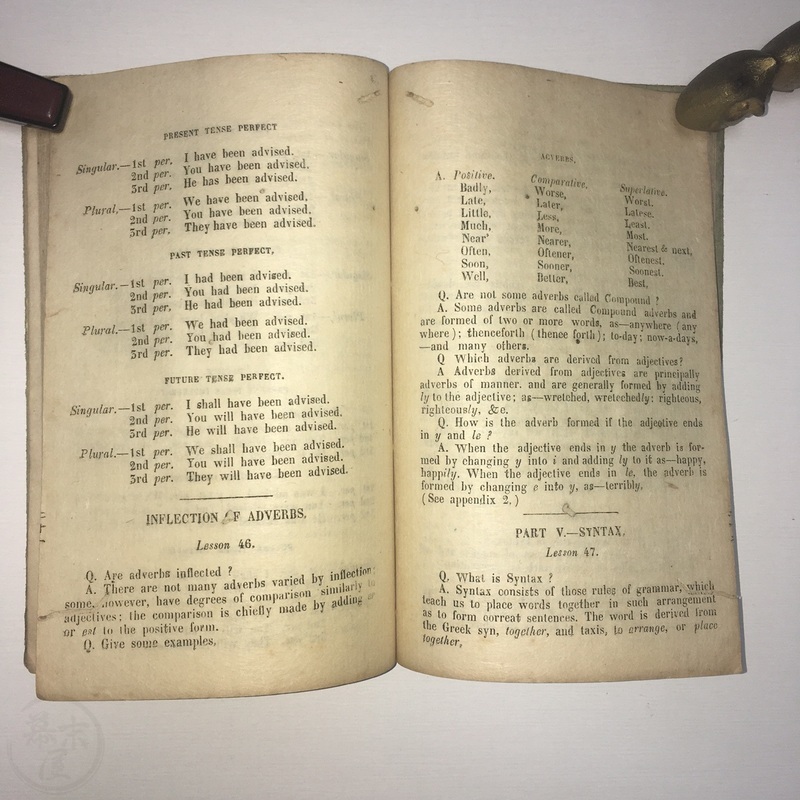 PRESENT TENSE PERFECT
Singular.—1st per. I have been advised.
2nd per. You have been advised.
3rd per. He has been advised.
Plural,—1st per. We have been advised.
2nd per. You have been advised.
3rd per. They have been advised.
PAST TENSE PERFECT,
Singular.—1st per. I had been advised.
2nd per. You had been advised.
3rd per, He had been advised.
Plural.—1st per. We had been advised.
2nd per. You had been advised.
3rd per. They had been advised.
FUTURE TENSE PERFECT.
Singular.—1st per. I shall have been advised.
2nd per. You will have been advised.
3rd per. He will have been advised.
Plural.—1st per. We shall have been advised.
2nd per. You will have been advised.
3rd per. They will have been advised.
INFLECTION OF ADVERBS.
Lesson 46.
Q. Are adverbs inflected ?
A. There are not many adverbs varied by inflection:
some, however, have degrees of comparison similarly to
adjectives; the comparison is chiefly made by adding er
or est to the positive form.
Q. Give some examples,
ADVERBS.
A. Positive. Comparative. Superlative.
Badly, Worse, Worst.
Late, Later, Latese.
Little, Less, Least.
Much, More, Most.
Near' Nearer, Nearest & next,
Often, Oftener, Oftenest.
Soon, Sooner, Soonest.
Well, Better, Best,
Q. Are not some adverbs called Compound ?
A. Some adverbs are called Compound adverbs and
are formed of two or more words, as—anywhere (any
where); thenceforth (thence forth); to-day; now-a-days,
—and many others.
Q Which adverbs are derived from adjectives?
A Adverbs derived from adjectives are principally
adverbs of manner. and are generally formed by adding
ly to the adjective; as—wretched, wretchedly: righteous,
righteously, &c.
Q. How is the adverb formed if the adjective ends
in y and le ?
A. When the adjective ends in y the adverb is for-
med by changing y into i and adding ly to it as—happy,
happily. When the adjective ends in le, the adverb is
formed by changing e into y, as—terribly.
(See appendix 2.)
PART V.—SYNTAX.
Lesson 47.
Q. What is Syntax ?
A. Syntax consists of those rules of grammar, which
teach us to place words together in such arrangement
as to form correat sentences. The word is derived from
the Greek syn, together, and taxis, to arrange, or place
together,